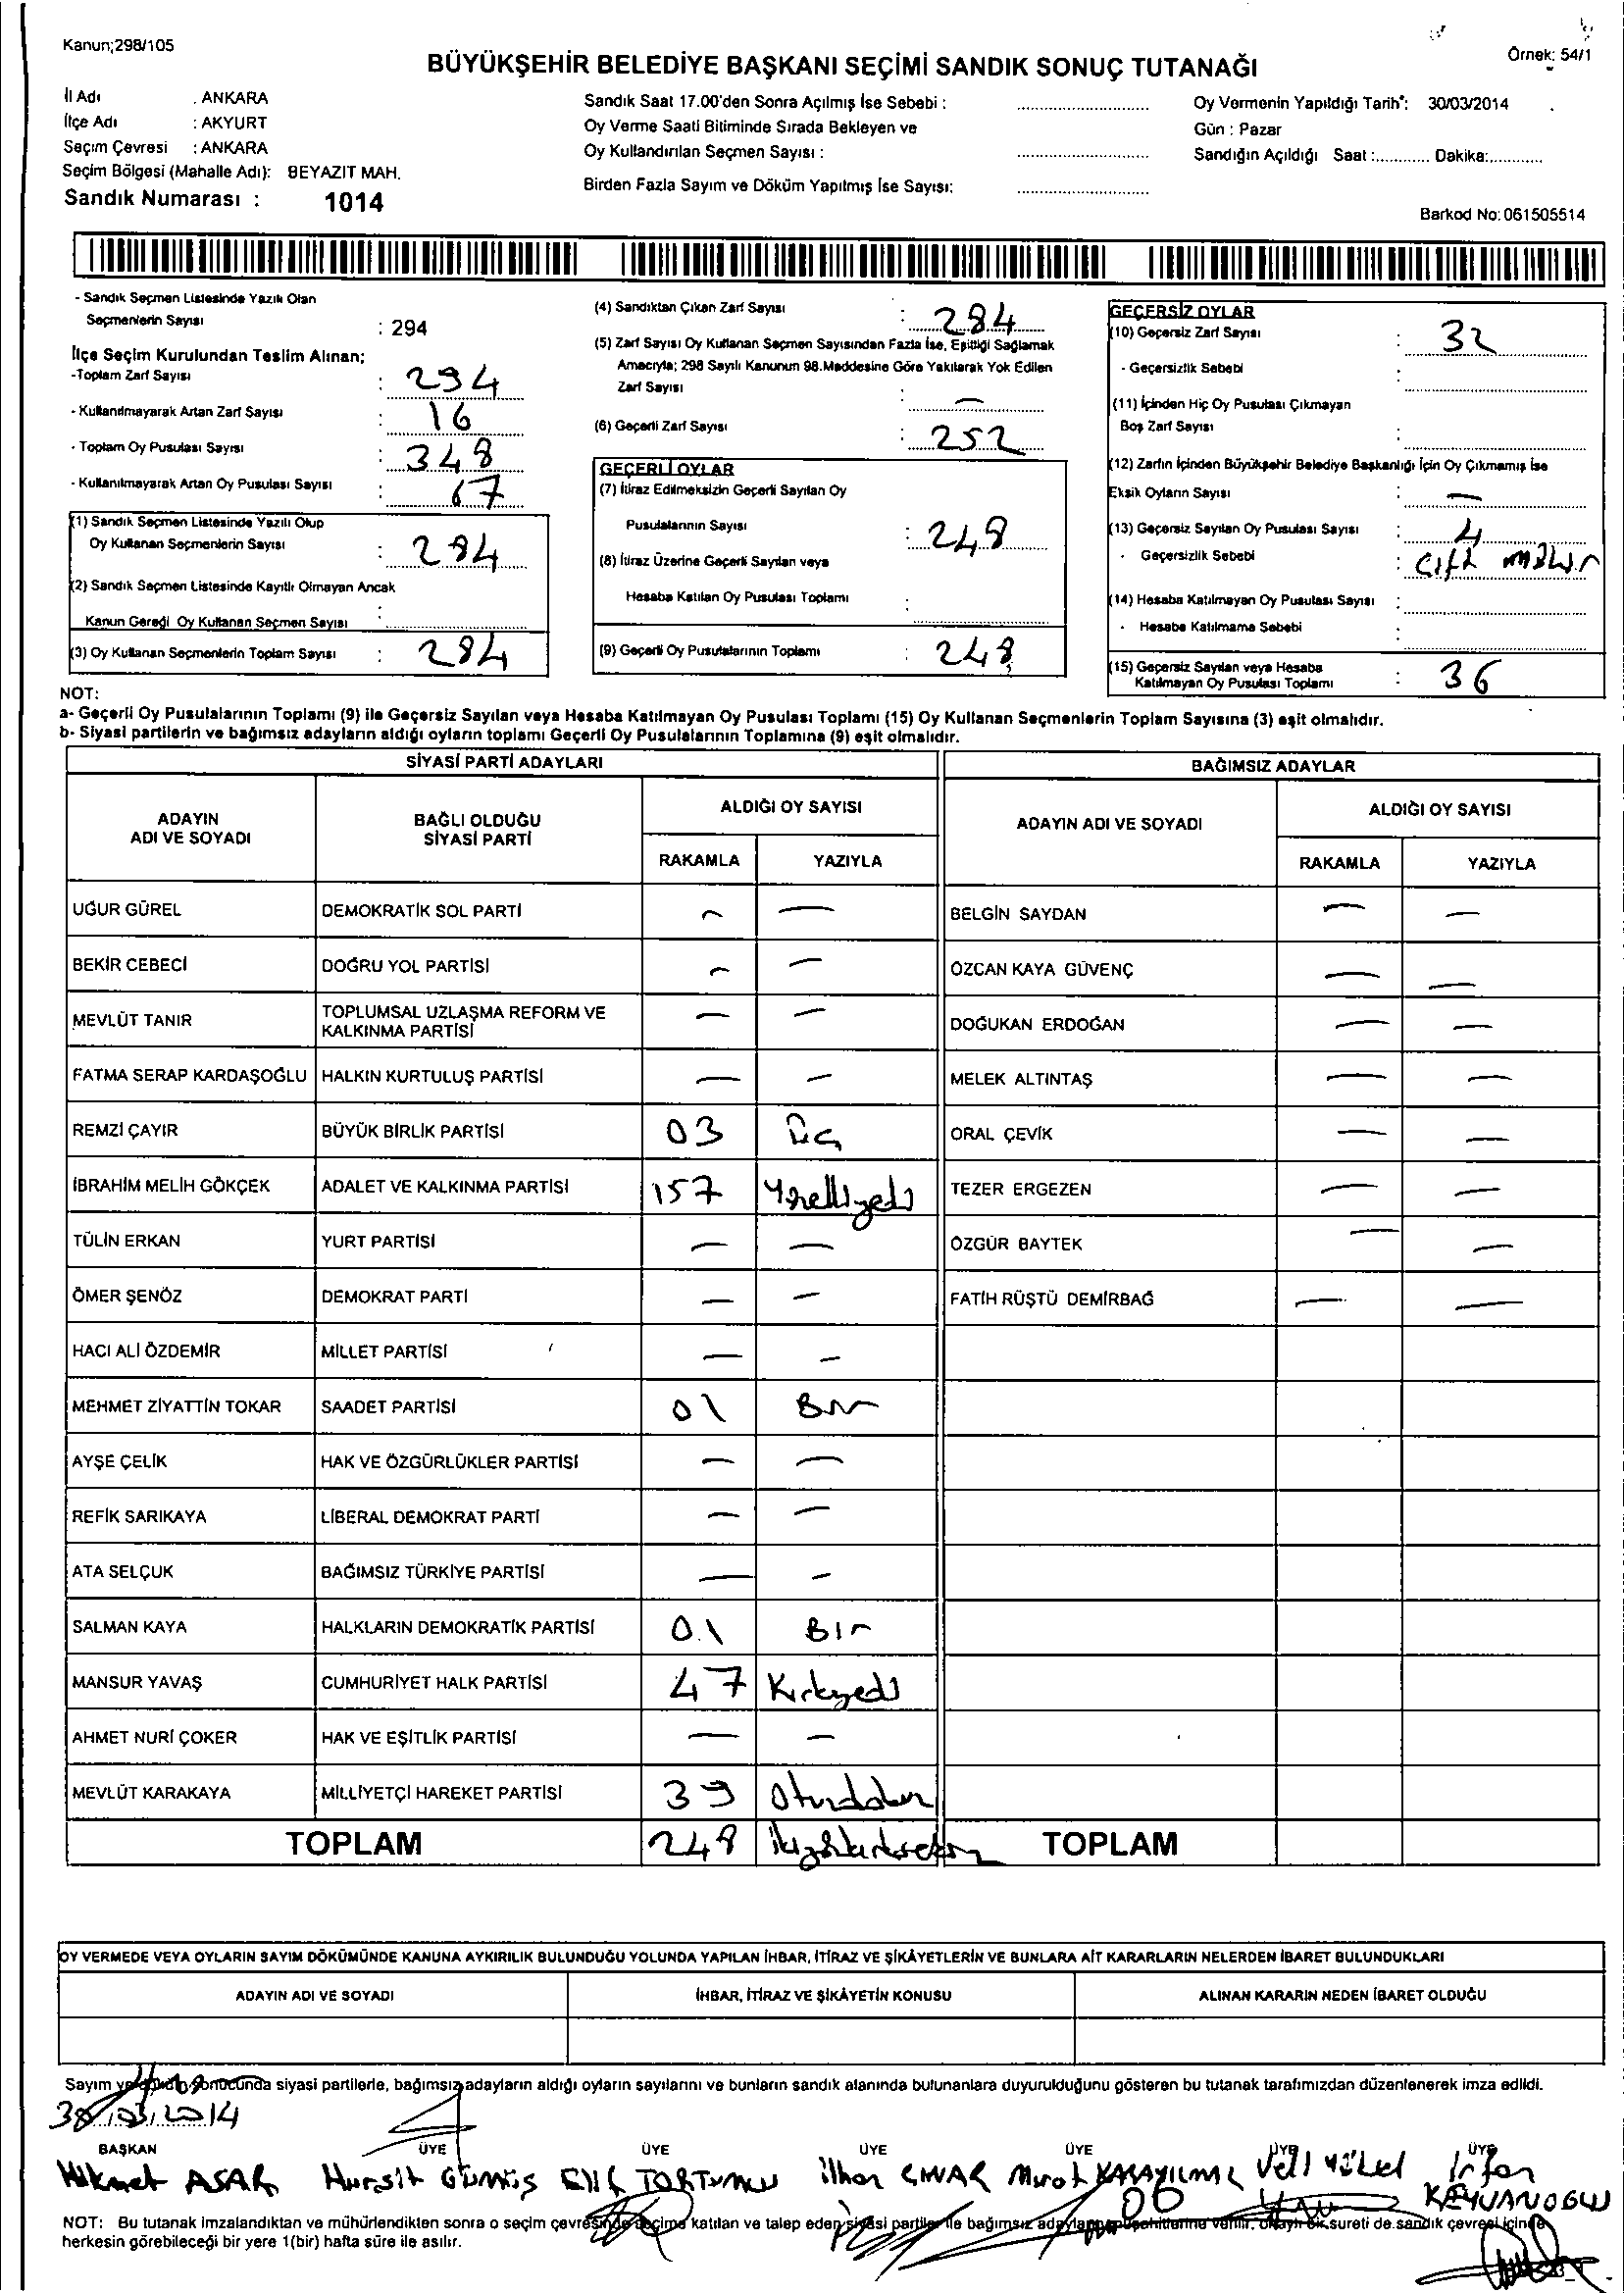 Kanun;298/105
Örnek: 54/1
BÜYÜKŞEHİR BELEDİYE BAŞKANI SEÇİMİ SANDIK SONUÇ TUTANAĞI
İl Adı : ANKARA
İlçe Adı : AKYURT
Seçim Çevresi : ANKARA
Seçim Bölgesi (Mahalle Adı): BEYAZIT MAH.
Sandık Numarası : 1014
Sandık Saat 17.00'den Sonra Açılmış İse Sebebi :
Oy Verme Saati Bitiminde Sırada Bekleyen ve
Oy Kullandırılan Seçmen Sayısı :
Birden Fazla Sayım ve Döküm Yapılmış İse Sayısı:
Oy Vermenin Yapıldığı Tarih*: 30/03/2014
Gün : Pazar
Sandığın Açıldığı Saat :............ Dakika:............
Barkod No: 061505514
- Sandık Seçmen Listesinde Yazılı Olan
Seçmenlerin Sayısı : 294
İlçe Seçim Kurulundan Teslim Alınan;
-Toplam Zarf Sayısı : 294
- Kullanılmayarak Artan Zarf Sayısı : 16
- Toplam Oy Pusulası Sayısı : 348
- Kullanılmayarak Artan Oy Pusulası Sayısı : 67
(1) Sandık Seçmen Listesinde Yazılı Olup
Oy Kullanan Seçmenlerin Sayısı : 284
(2) Sandık Seçmen Listesinde Kayıtlı Olmayan Ancak
Kanun Gereği Oy Kullanan Seçmen Sayısı :
(3) Oy Kullanan Seçmenlerin Toplam Sayısı : 284
(4) Sandıktan Çıkan Zarf Sayısı : 284
(5) Zarf Sayısı Oy Kullanan Seçmen Sayısından Fazla İse, Eşitliği Sağlamak
Amacıyla; 298 Sayılı Kanunun 98.Maddesine Göre Yakılarak Yok Edilen
Zarf Sayısı : —
(6) Geçerli Zarf Sayısı : 252
GEÇERLİ OYLAR
(7) İtiraz Edilmeksizin Geçerli Sayılan Oy
Pusulalarının Sayısı : 248
(8) İtiraz Üzerine Geçerli Sayılan veya
Hesaba Katılan Oy Pusulası Toplamı :
(9) Geçerli Oy Pusulalarının Toplamı : 248
GEÇERSİZ OYLAR
(10) Geçersiz Zarf Sayısı : 32
- Geçersizlik Sebebi :
(11) İçinden Hiç Oy Pusulası Çıkmayan
Boş Zarf Sayısı :
(12) Zarfın İçinden Büyükşehir Belediye Başkanlığı İçin Oy Çıkmamış İse
Eksik Oyların Sayısı : —
(13) Geçersiz Sayılan Oy Pusulası Sayısı : 4
- Geçersizlik Sebebi : Çift mühür
(14) Hesaba Katılmayan Oy Pusulası Sayısı :
- Hesaba Katılmama Sebebi :
(15) Geçersiz Sayılan veya Hesaba
Katılmayan Oy Pusulası Toplamı : 36
NOT:
a- Geçerli Oy Pusulalarının Toplamı (9) ile Geçersiz Sayılan veya Hesaba Katılmayan Oy Pusulası Toplamı (15) Oy Kullanan Seçmenlerin Toplam Sayısına (3) eşit olmalıdır.
b- Siyasi partilerin ve bağımsız adayların aldığı oyların toplamı Geçerli Oy Pusulalarının Toplamına (9) eşit olmalıdır.
SİYASİ PARTİ ADAYLARI
ADAYIN ADI VE SOYADI
BAĞLI OLDUĞU SİYASİ PARTİ
ALDIĞI OY SAYISI
RAKAMLA YAZIYLA
UĞUR GÜREL DEMOKRATİK SOL PARTİ — —
BEKİR CEBECİ DOĞRU YOL PARTİSİ — —
MEVLÜT TANIR TOPLUMSAL UZLAŞMA REFORM VE KALKINMA PARTİSİ — —
FATMA SERAP KARDAŞOĞLU HALKIN KURTULUŞ PARTİSİ — —
REMZİ ÇAYIR BÜYÜK BİRLİK PARTİSİ 03 Üç
İBRAHİM MELİH GÖKÇEK ADALET VE KALKINMA PARTİSİ 157 Yüzelliyedi
TÜLİN ERKAN YURT PARTİSİ — —
ÖMER ŞENÖZ DEMOKRAT PARTİ — —
HACI ALİ ÖZDEMİR MİLLET PARTİSİ — —
MEHMET ZİYATTİN TOKAR SAADET PARTİSİ 01 Bir
AYŞE ÇELİK HAK VE ÖZGÜRLÜKLER PARTİSİ — —
REFİK SARIKAYA LİBERAL DEMOKRAT PARTİ — —
ATA SELÇUK BAĞIMSIZ TÜRKİYE PARTİSİ — —
SALMAN KAYA HALKLARIN DEMOKRATİK PARTİSİ 01 Bir
MANSUR YAVAŞ CUMHURİYET HALK PARTİSİ 47 Kırkyedi
AHMET NURİ ÇOKER HAK VE EŞİTLİK PARTİSİ — —
MEVLÜT KARAKAYA MİLLİYETÇİ HAREKET PARTİSİ 39 Otuzdokuz
TOPLAM 248 İkiyüzkırksekiz
BAĞIMSIZ ADAYLAR
ADAYIN ADI VE SOYADI
ALDIĞI OY SAYISI
RAKAMLA YAZIYLA
BELGİN SAYDAN — —
ÖZCAN KAYA GÜVENÇ — —
DOĞUKAN ERDOĞAN — —
MELEK ALTINTAŞ — —
ORAL ÇEVİK — —
TEZER ERGEZEN — —
ÖZGÜR BAYTEK — —
FATİH RÜŞTÜ DEMİRBAĞ — —
TOPLAM
OY VERMEDE VEYA OYLARIN SAYIM DÖKÜMÜNDE KANUNA AYKIRILIK BULUNDUĞU YOLUNDA YAPILAN İHBAR, İTİRAZ VE ŞİKÂYETLERİN VE BUNLARA AİT KARARLARIN NELERDEN İBARET BULUNDUKLARI
ADAYIN ADI VE SOYADI İHBAR, İTİRAZ VE ŞİKÂYETİN KONUSU ALINAN KARARIN NEDEN İBARET OLDUĞU
Sayım ve döküm sonucunda siyasi partilerle, bağımsız adayların aldığı oyların sayılarını ve bunların sandık alanında bulunanlara duyurulduğunu gösteren bu tutanak tarafımızdan düzenlenerek imza edildi.
30/03/2014
BAŞKAN ÜYE ÜYE ÜYE ÜYE ÜYE ÜYE
Hikmet ASAR Hurşit GÜMÜŞ Elif TORTUMLU İlhan ÇINAR Murat KARAYILMAZ Veli Yüksel İrfan KEYVANOĞLU
NOT: Bu tutanak imzalandıktan ve mühürlendikten sonra o seçim çevresinde seçime katılan ve talep eden siyasi partiler ile bağımsız adayların müşahitlerine verilir, onaylı bir sureti de sandık çevresi içinde
herkesin görebileceği bir yere 1(bir) hafta süre ile asılır.